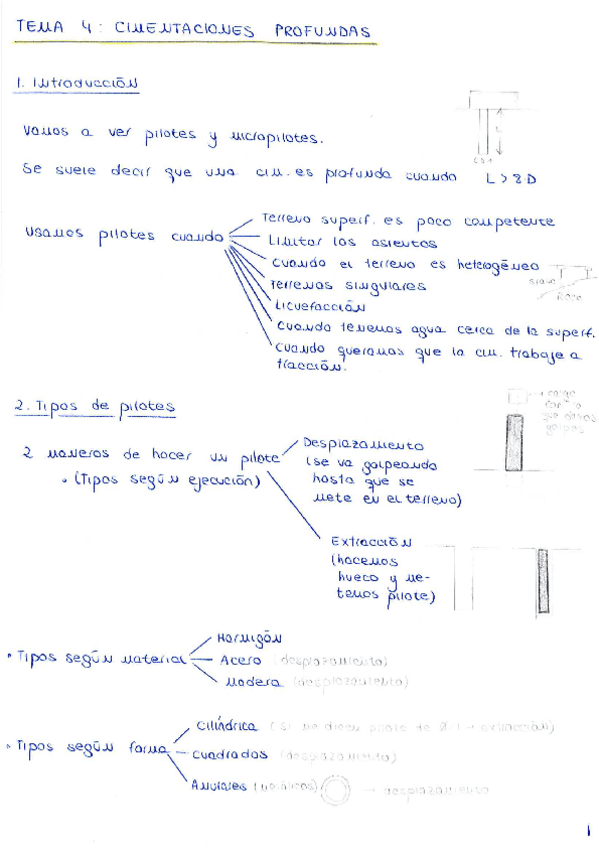 TEMA 4: CIMENTACIONES PROFUNDAS
1. Introducción
Vamos a ver pilotes y micropilotes.
Se suele decir que una cim. es profunda cuando L > 8D
L
Usamos pilotes cuando
Terreno superf. es poco competente
Limitar los asientos
Cuando el terreno es heterogéneo
Terrenos singulares
Licuefacción
Cuando tenemos agua cerca de la superf.
Cuando queramos que la cim. trabaje a
tracción.
Roca
2. Tipos de pilotes
2 maneras de hacer un pilote
• (Tipos según ejecución)
Desplazamiento
(se va golpeando
hasta que se
mete en el terreno)
Extracción
(hacemos
hueco y me-
temos pilote)
• Tipos según material
Hormigón
Acero (desplazamiento)
Madera (desplazamiento)
• Tipos según forma
Cilíndrica (Si me dicen pilote de extracción)
Cuadrados (desplazamiento)
Anulares → desplazamiento
1